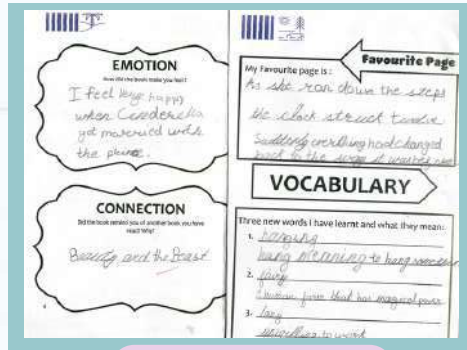 EMOTION
How did the book make you feel?
I feel very happy
when Cinderella
got married with
the prince.
CONNECTION
Did the book remind you of another book you have
read? Why?
Beauty and the Beast
Favourite Page
My Favourite page is :
As she ran down the steps
the clock struck twelve
Suddenly everything had changed
back to the way it was
VOCABULARY
Three new words I have learnt and what they mean:
1. hanging
hang meaning to hang
2. fairy
human form that has magical power
3. lazy
unwilling to work